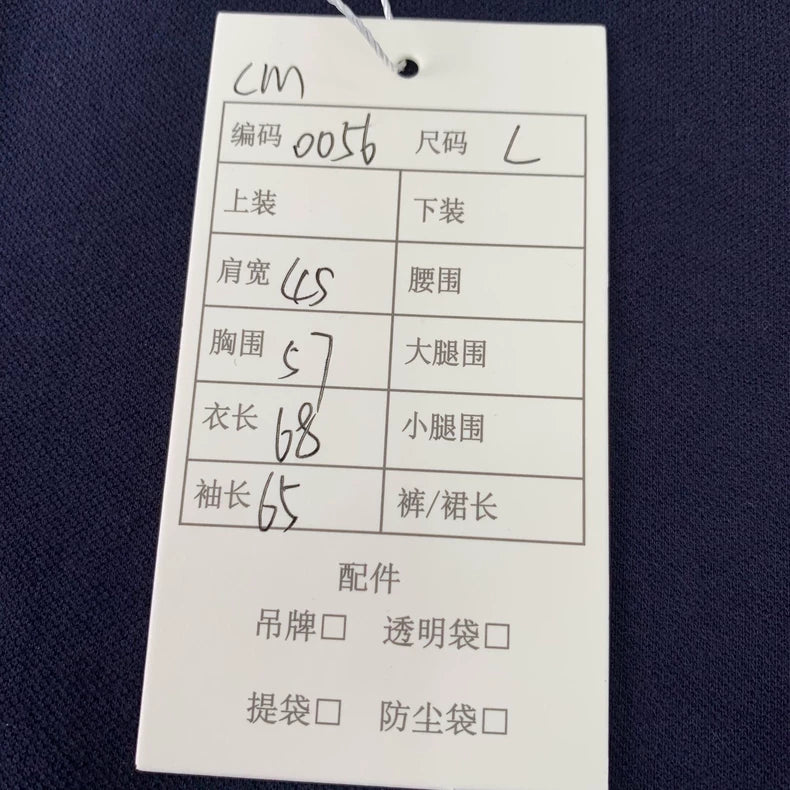 CM
编码 0056 尺码 L
上装 下装
肩宽 45 腰围
胸围 57 大腿围
衣长 68 小腿围
袖长 65 裤/裙长
配件
吊牌□ 透明袋□
提袋□ 防尘袋□